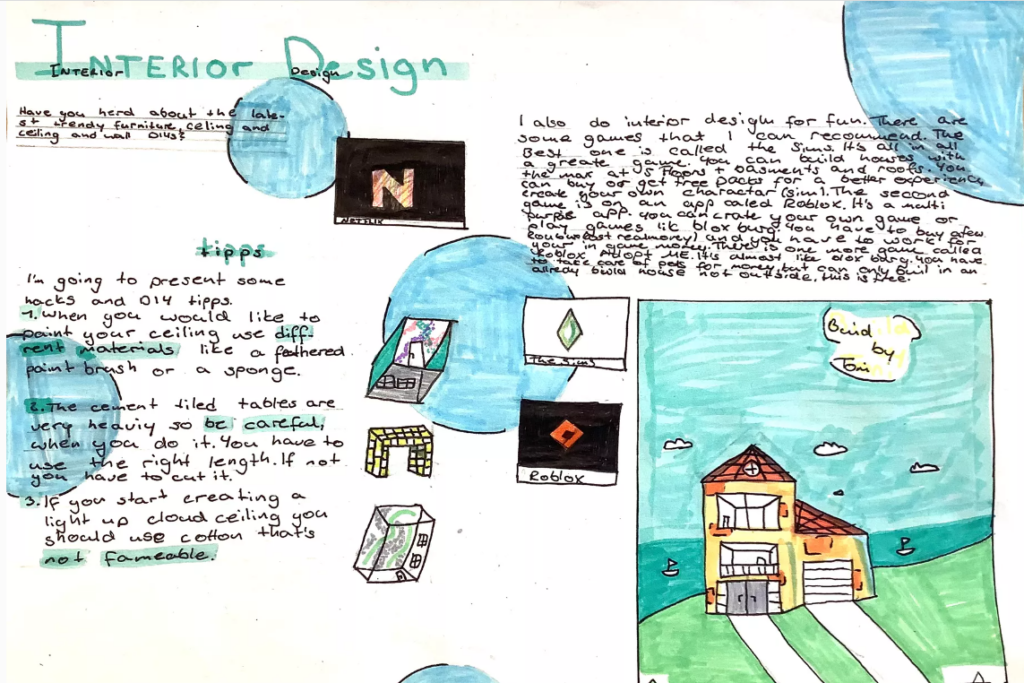 INTERIOR Design
INTERIOR Design
Have you herd about the late-
st trendy furniture, celing and
ceiling and wall D14s?
N
NETFLIX
tipps
I'm going to present some
hacks and D14 tipps.
1. When you would like to
paint your ceiling use diff-
rent materials like a feathered
paint brush or a sponge.
2. The cement tiled tables are
very heaviy so be careful,
when you do it. You have to
use the right length. If not
you have to cut it.
3. If you start creating a
light up cloud ceiling you
should use cotton that's
not fameable.
I also do interior design for fun. There are
some games that I can recommend. The
Best one is called the Sims. It's all in all
a greate game. You can build houses with
the max at 5 floors + basments and roofs. You
can buy or get free packs for a better experiency
create your own charactar (sim). The second
game is on an app called Roblox. It's a multi
purpis app. you can crate your own game or
play games lik blox burg. You have to buy afew
(cost realmoney) and you have to work for
your in game money. There is one more game called
Roblox Adopt ME. It's almost like blox burg. you have
to take care of pets for money, but can only buil in an
allredy build house not outside, this is free.
The Sims
Roblox
Build
by
Tom